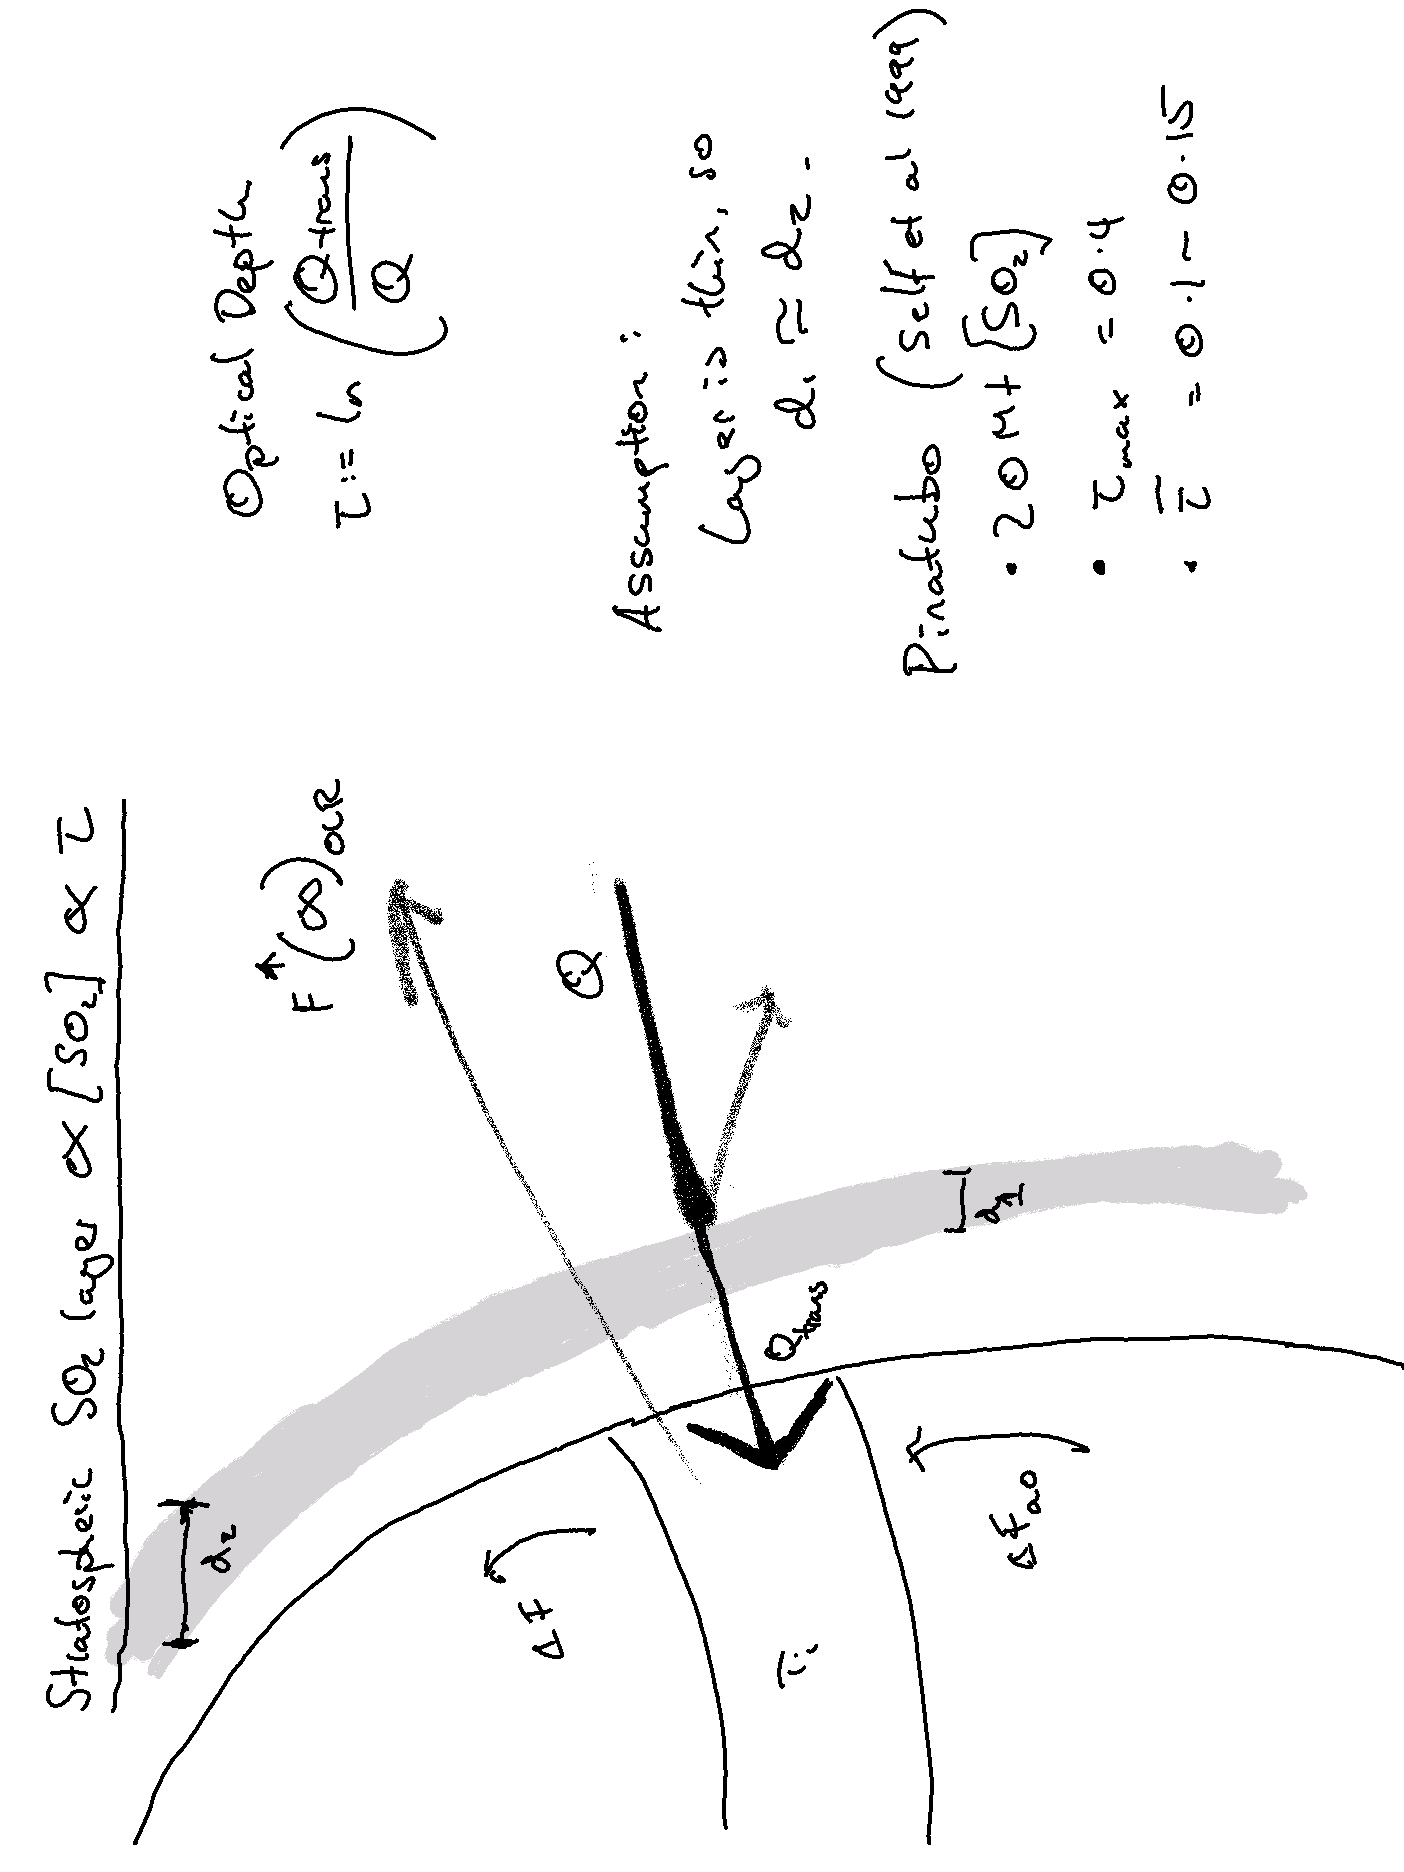 Stratospheric SO₂ layer ∝ [SO₂] ∝ τ
d₂
F↑(∞)OLR
Q
Qtrans
d₁
ΔF
Tᵢ
ΔFao
Optical Depth
τ := ln (Qtrans / Q)
Assumption:
Layer is thin, so
d₁ ≈ d₂.
Pinatubo (Self et al 1999)
• 20 Mt [SO₂]
• τmax = 0.4
• τ̄ = 0.1 - 0.15